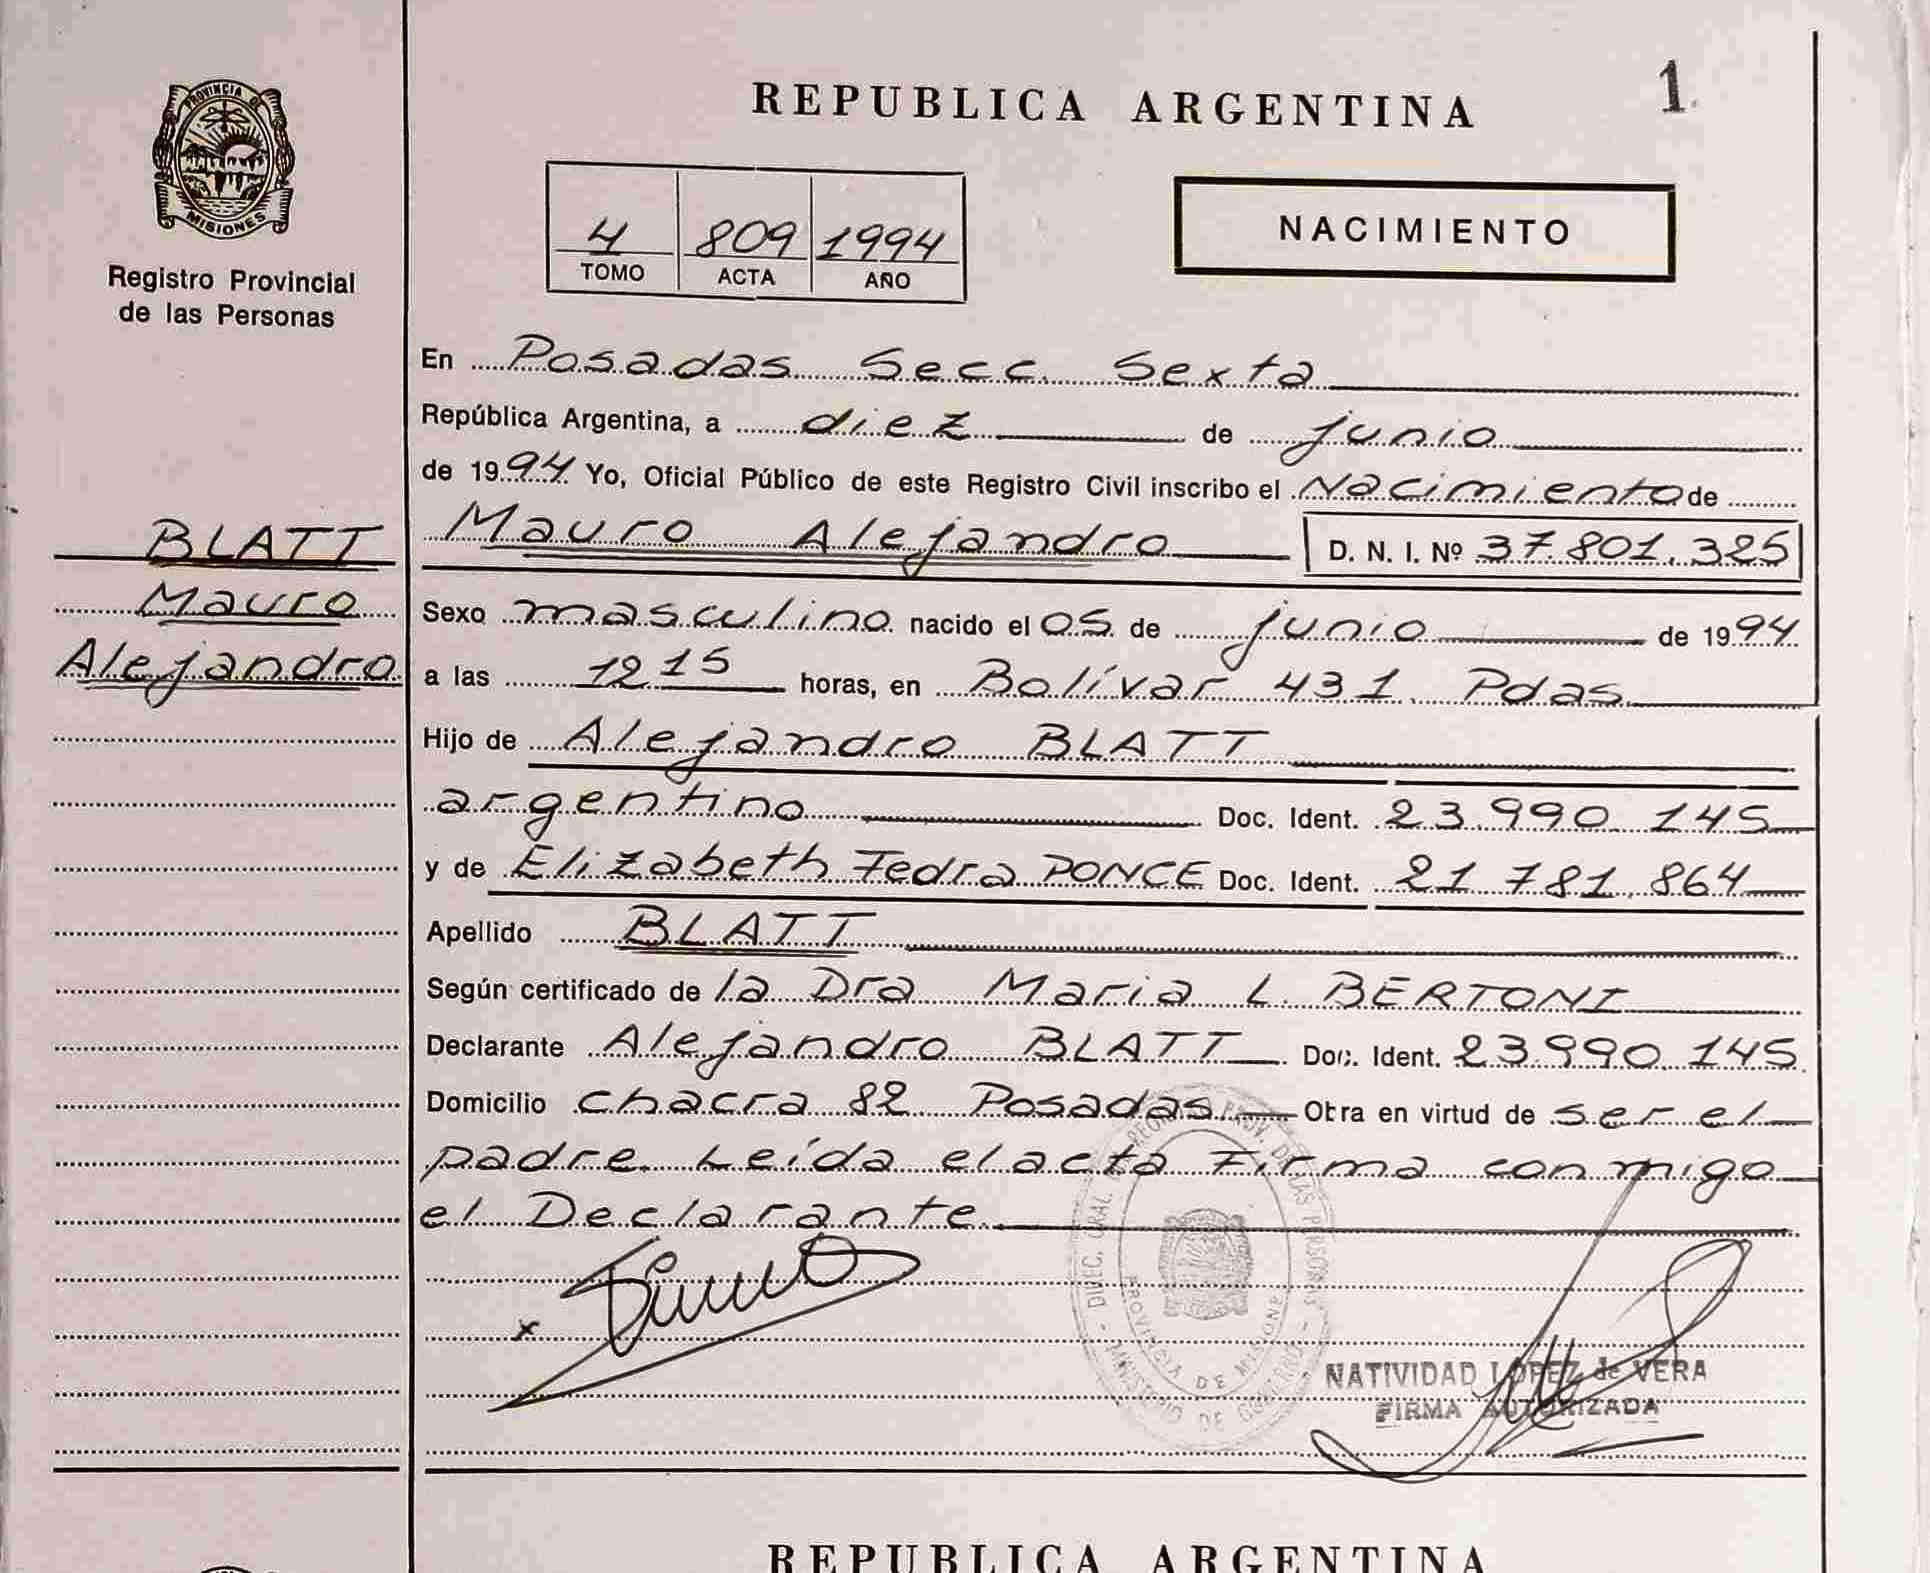 PROVINCIA DE
MISIONES
Registro Provincial
de las Personas
BLATT
Mauro
Alejandro
REPUBLICA ARGENTINA
1
4 809 1994
TOMO ACTA AÑO
NACIMIENTO
En Posadas Secc. Sexta
República Argentina, a diez de junio
de 1994 Yo, Oficial Público de este Registro Civil inscribo el Nacimiento de
Mauro Alejandro D. N. I. Nº 37.801.325
Sexo masculino nacido el 05 de junio de 1994
a las 12 15 horas, en Bolívar 431. Pdas
Hijo de Alejandro BLATT
argentino Doc. Ident. 23.990.145
y de Elizabeth Fedra PONCE Doc. Ident. 21 781.864
Apellido BLATT
Según certificado de la Dra Maria L. BERTONI
Declarante Alejandro BLATT Doc. Ident. 23.990.145
Domicilio chacra 82 Posadas Obra en virtud de ser el
padre. Leída el acta Firma conmigo
el Declarante
x
PROVINCIA DE MISIONES
MINISTERIO DE GOBIERNO
NATIVIDAD LOPEZ de VERA
FIRMA AUTORIZADA
REPUBLICA ARGENTINA